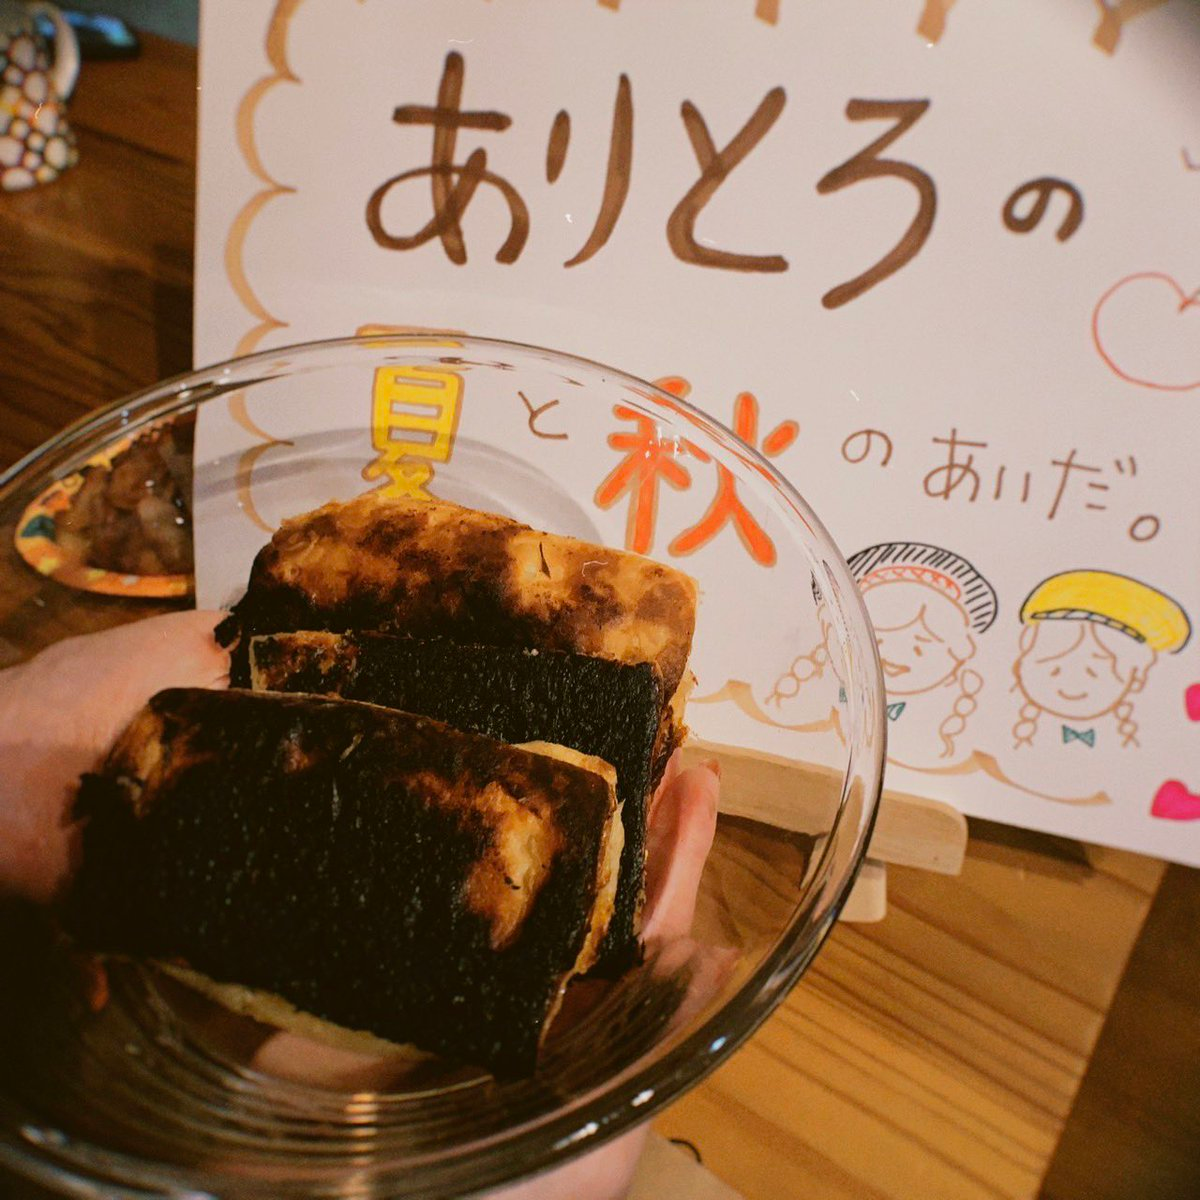 ありとろの
夏と秋のあいだ。